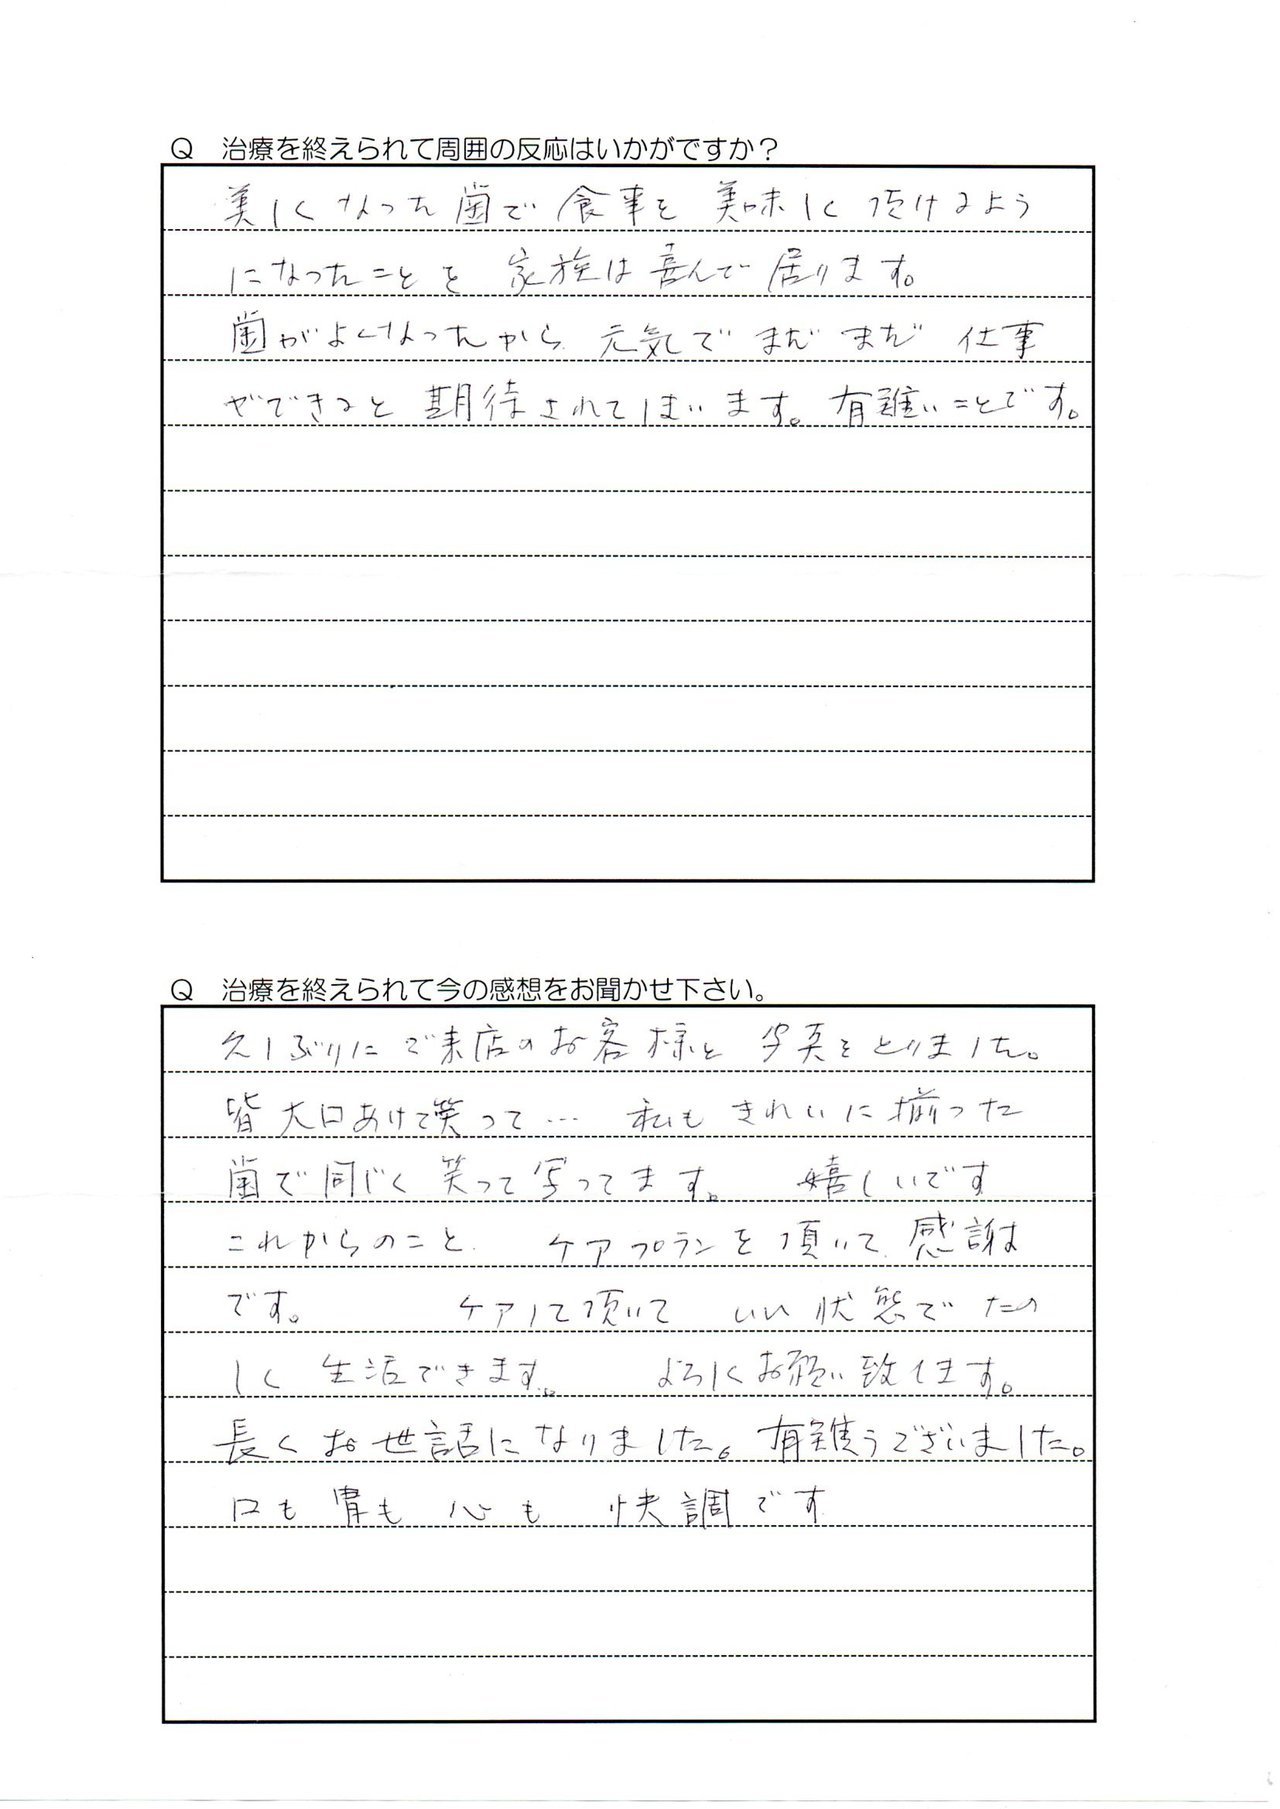 Q 治療を終えられて周囲の反応はいかがですか？
美しくなった歯で食事を美味しく頂けるよう
になったことを 家族は喜んで居ります。
歯がよくなったから 元気で まだ まだ 仕事
ができると 期待されてしまいます。有難いことです。
Q 治療を終えられて今の感想をお聞かせ下さい。
久しぶりにご来店のお客様と 写真をとりました。
皆大口あけて笑って… 私も きれいに揃った
歯で同じく 笑って写ってます。 嬉しいです
これからのこと ケアプランを頂いて 感謝
です。 ケアして頂いて いい状態で たの
しく 生活できます。 よろしくお願い致します。
長くお世話になりました。有難うございました。
口も 胃も 心も 快調です